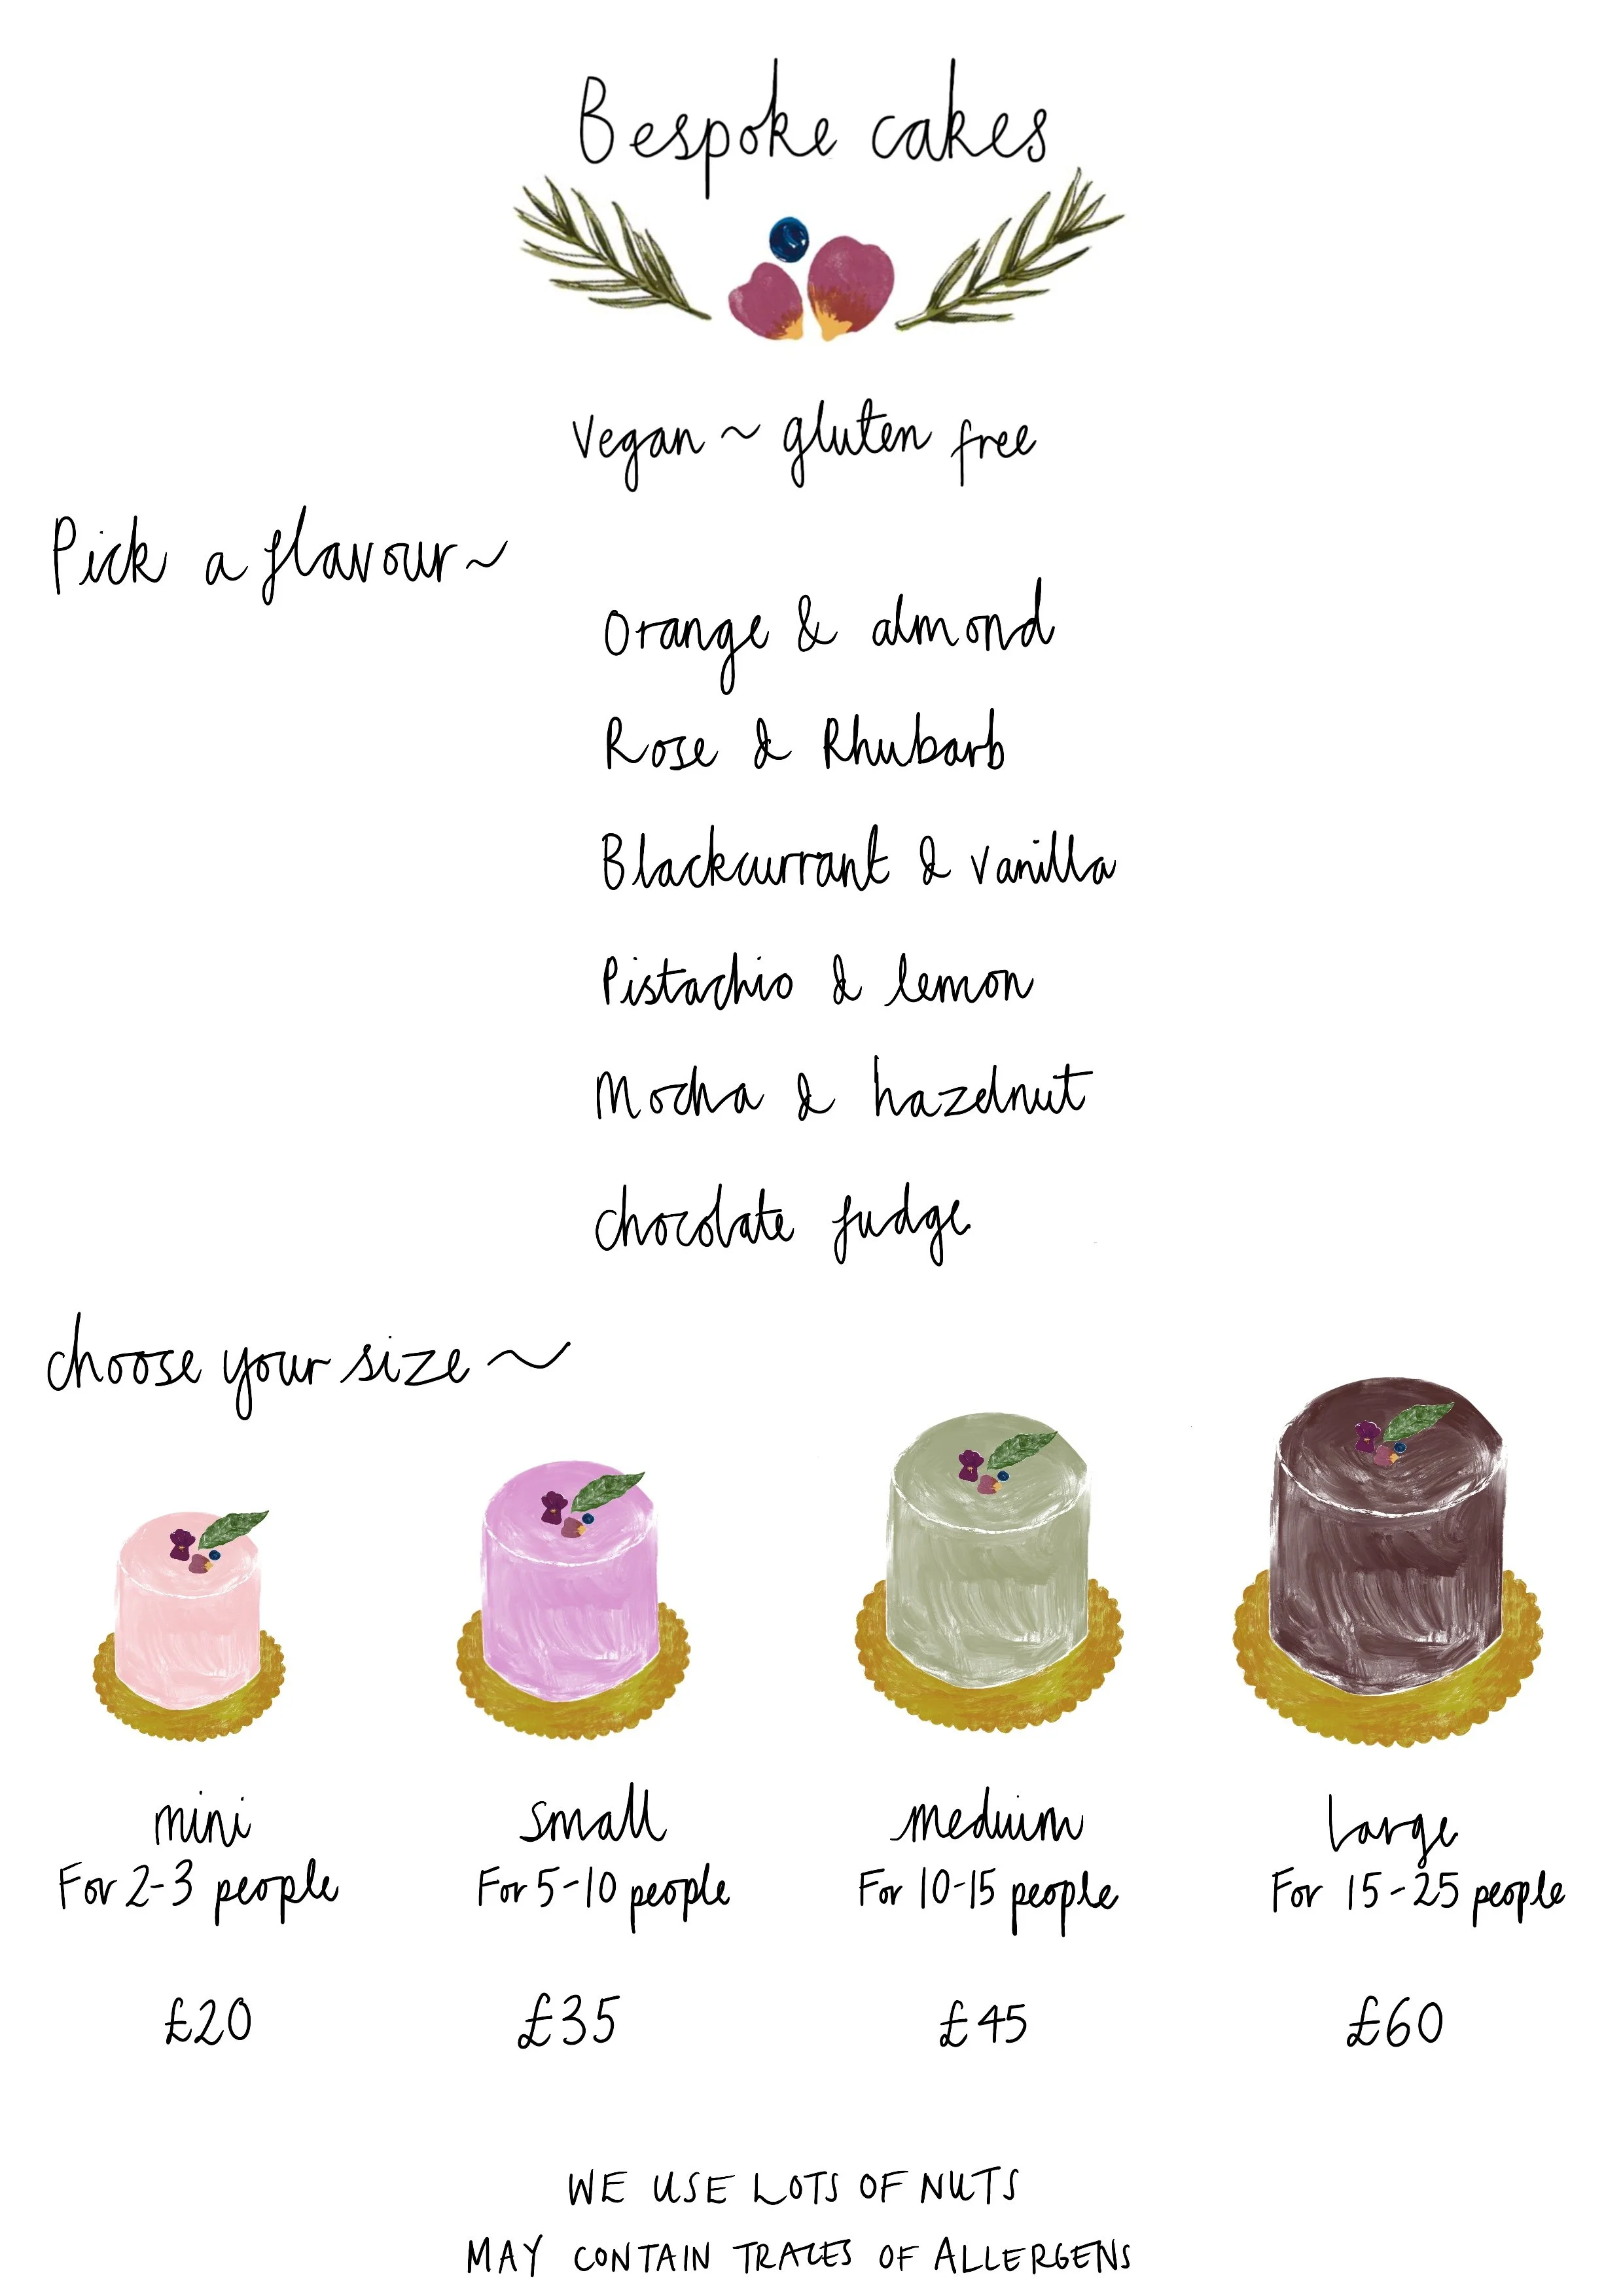 Bespoke cakes
Vegan ~ gluten free
Pick a flavour ~
Orange & almond
Rose & Rhubarb
Blackcurrant & vanilla
Pistachio & lemon
Mocha & hazelnut
chocolate fudge
choose your size ~
mini small medium large
For 2-3 people For 5-10 people For 10-15 people For 15-25 people
£20 £35 £45 £60
WE USE LOTS OF NUTS
MAY CONTAIN TRACES OF ALLERGENS